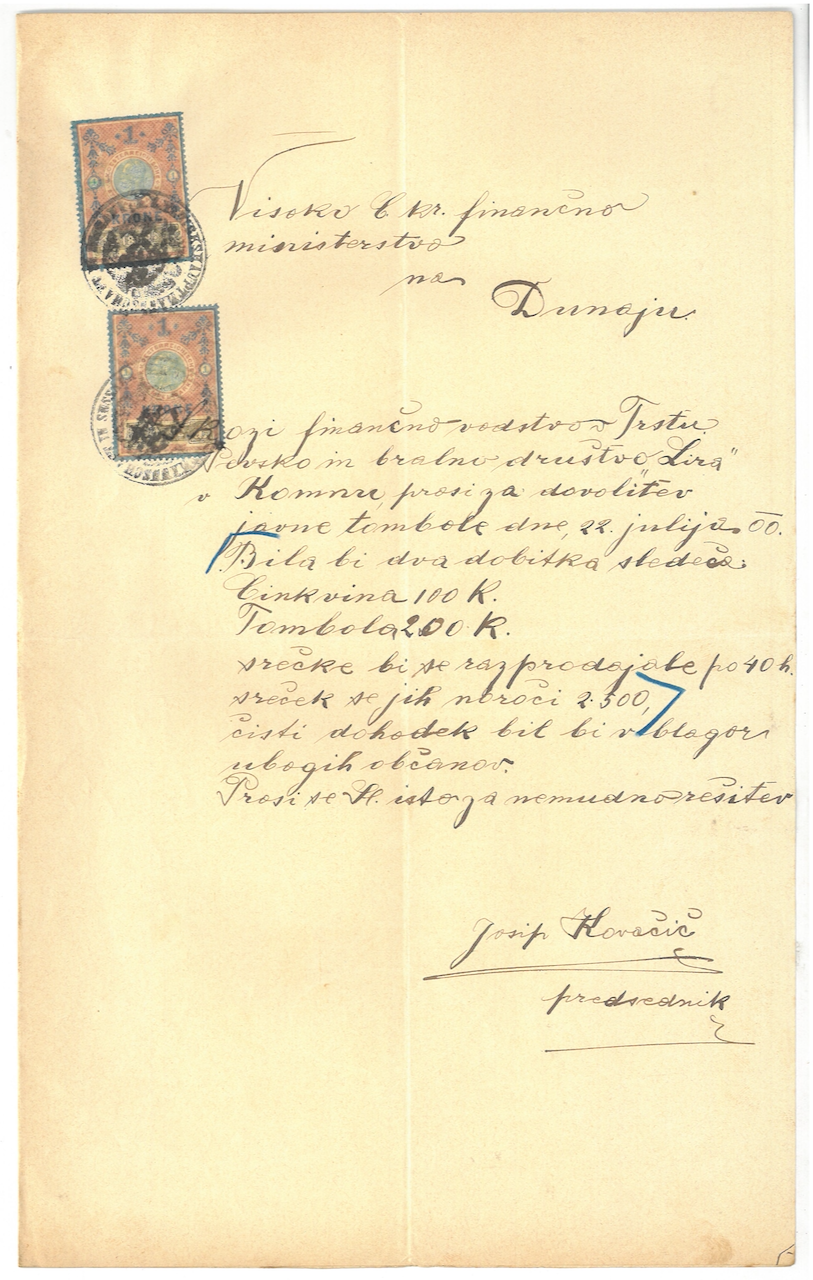 Visoko C. kr. finančno
ministerstvo
na
Dunaju.
Skozi finančno vodstvo v Trstu.
Pevsko in bralno društvo „Lira"
v Komnu, prosi za dovolitev
javne tombole dne, 22. julija 00.
Bila bi dva dobitka sledeča:
Cinkvina 100 K.
Tombola 200 K.
srečke bi se razprodajale po 40 h.
sreček se jih naroči 2.500,
čisti dohodek bil bi v blagor
ubogih občanov.
Prosi se sl. isto za nemudno rešitev
Josip Kovačič
predsednik
1
1